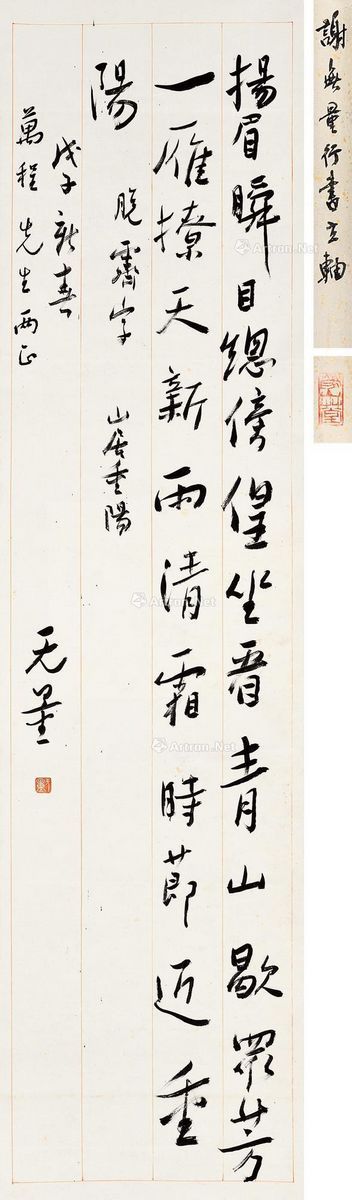 謝無量行書立軸
揚眉瞬目總傍偟坐看青山歇眾芳
一雁撩天新雨清霜時節近重
陽 脫霽字 山居重陽
戊子新春
萬程先生兩正 无量
Artron.Net
Artron.Net
Artron.Net